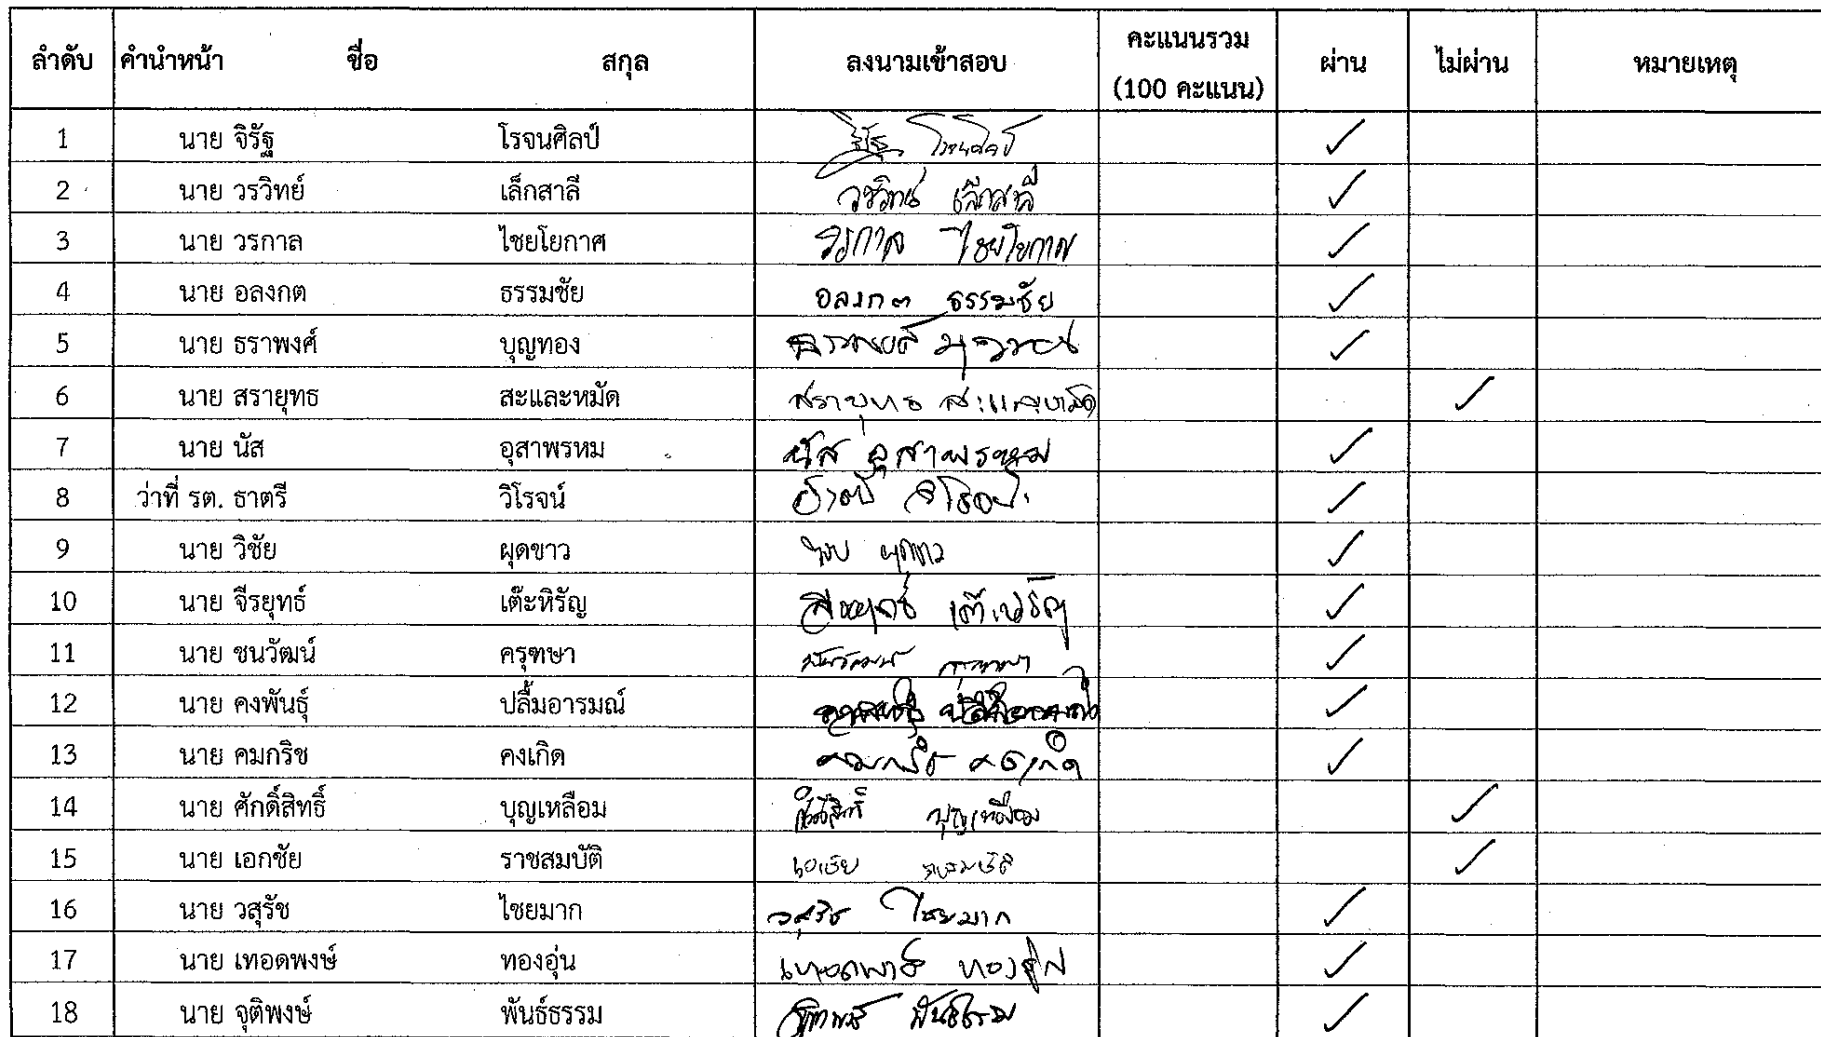 ลำดับ คำนำหน้า ชื่อ สกุล ลงนามเข้าสอบ คะแนนรวม (100 คะแนน) ผ่าน ไม่ผ่าน หมายเหตุ
1 นาย จิรัฐ โรจนศิลป์ ✓
2 นาย วรวิทย์ เล็กสาลี วรวิทย์ เล็กสาลี ✓
3 นาย วรกาล ไชยโยกาศ วรกาล ไชยโยกาศ ✓
4 นาย อลงกต ธรรมชัย อลงกต ธรรมชัย ✓
5 นาย ธราพงศ์ บุญทอง ธราพงศ์ บุญทอง ✓
6 นาย สรายุทธ สะและหมัด สรายุทธ สะและหมัด ✓
7 นาย นัส อุสาพรหม นัส อุสาพรหม ✓
8 ว่าที่ รต. ธาตรี วิโรจน์ ธาตรี วิโรจน์ ✓
9 นาย วิชัย ผุดขาว ✓
10 นาย จีรยุทธ์ เต๊ะหิรัญ จีรยุทธ์ เต๊ะหิรัญ ✓
11 นาย ชนวัฒน์ ครุฑษา ✓
12 นาย คงพันธุ์ ปลื้มอารมณ์ ✓
13 นาย คมกริช คงเกิด คมกริช คงเกิด ✓
14 นาย ศักดิ์สิทธิ์ บุญเหลือม บุญเหลือม ✓
15 นาย เอกชัย ราชสมบัติ ✓
16 นาย วสุรัช ไชยมาก วสุรัช ไชยมาก ✓
17 นาย เทอดพงษ์ ทองอุ่น เทอดพงษ์ ทองอุ่น ✓
18 นาย จุติพงษ์ พันธ์ธรรม พันธ์ธรรม ✓